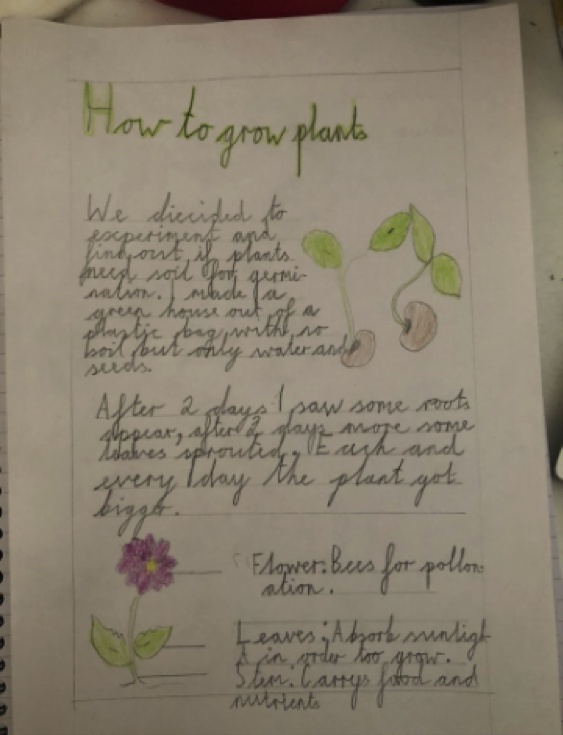 How to grow plants
We diecided to
experiment and
find out if plants
need soil for germi-
nation. I made a
green house out of a
plastic bag with no
soil but only water and
seeds.
After 2 days I saw some roots
appear, after 2 days more some
leaves sprouted. Each and
every 1 day the plant got
bigger.
Flower: Bees for pollon-
ation.
Leaves: Absorb sunligh
t in order too grow.
Stem: Carrys food and
nutrients